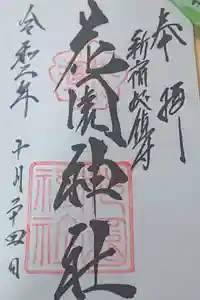 奉拝
新宿総鎮守
花園神社
令和年
十月二十四日
花園
神社